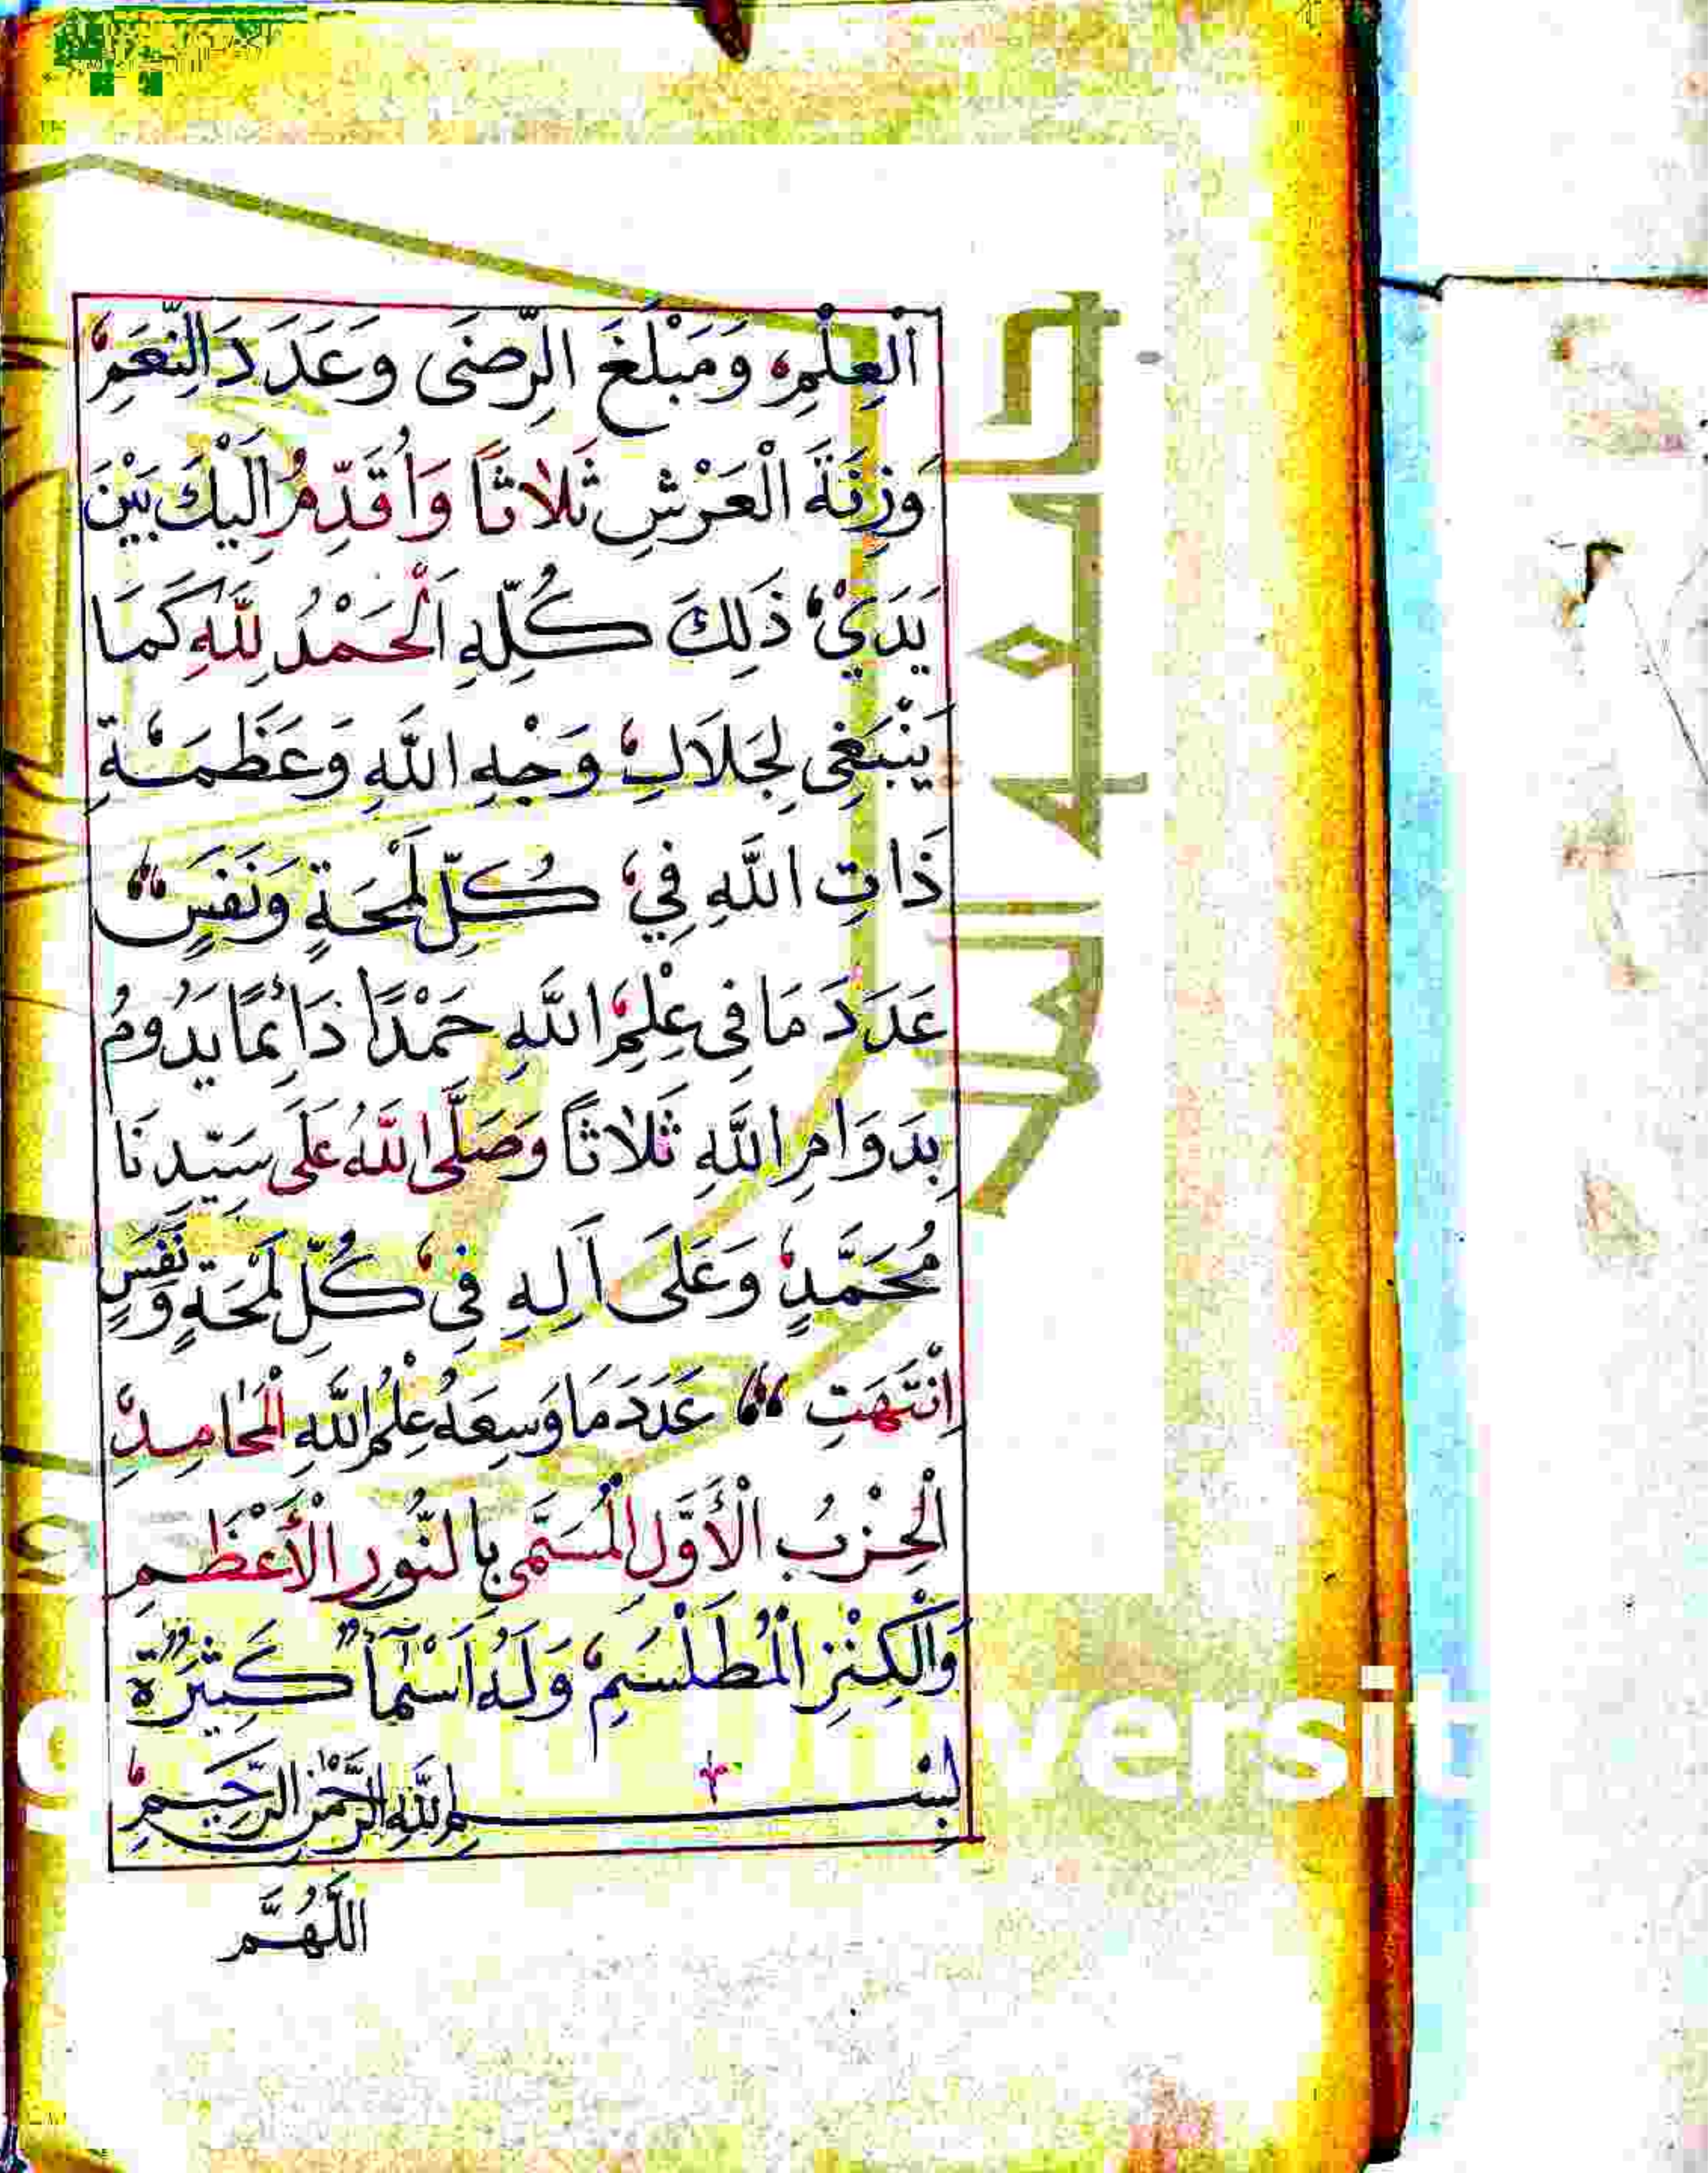 اَلْعِلْمِ، وَمَبْلَغَ الرِّضَى وَعَدَدَ النِّعَمِ،
وَزِنَةَ الْعَرْشِ ثَلاثاً وَاُقَدِّمُ اِلَيْكَ بَيْنَ
يَدَيْ، ذَلِكَ كُلِّهِ اَلْحَمْدُ لِلّٰهِ كَمَا
يَنْبَغِى لِجَلَالِ، وَجْهِ اللّٰهِ وَعَظَمَةِ
ذَاتِ اللّٰهِ فِي، كُلِّ لَمْحَةٍ وَنَفَسٍ
عَدَدَ مَا فِى عِلْمِ، اللّٰهِ حَمْدًا دَائِمًا يَدُومُ
بِدَوَامِ اللّٰهِ ثَلاثاً وَصَلَّى اللّٰهُ عَلَى سَيِّدِنَا
مُحَمَّدٍ، وَعَلَى آلِهِ فِى، كُلِّ لَمْحَةٍ وَنَفَسٍ
اِنْتَهَتِ عَدَدَ مَا وَسِعَهُ عِلْمُ اللّٰهِ الْمَحَامِدِ،
اَلْحِزْبُ الْأَوَّلِ الْمُسَمَّى بِالنُّورِ الْأَعْظَمِ
وَالْكَنْزِ الْمُطَلْسَمِ، وَلَهُ اَسْمَآءٌ كَثِيرَةٌ
بِسْمِ اللّٰهِ الرَّحْمٰنِ الرَّحِيمِ،
اللّٰهُمَّ
versit